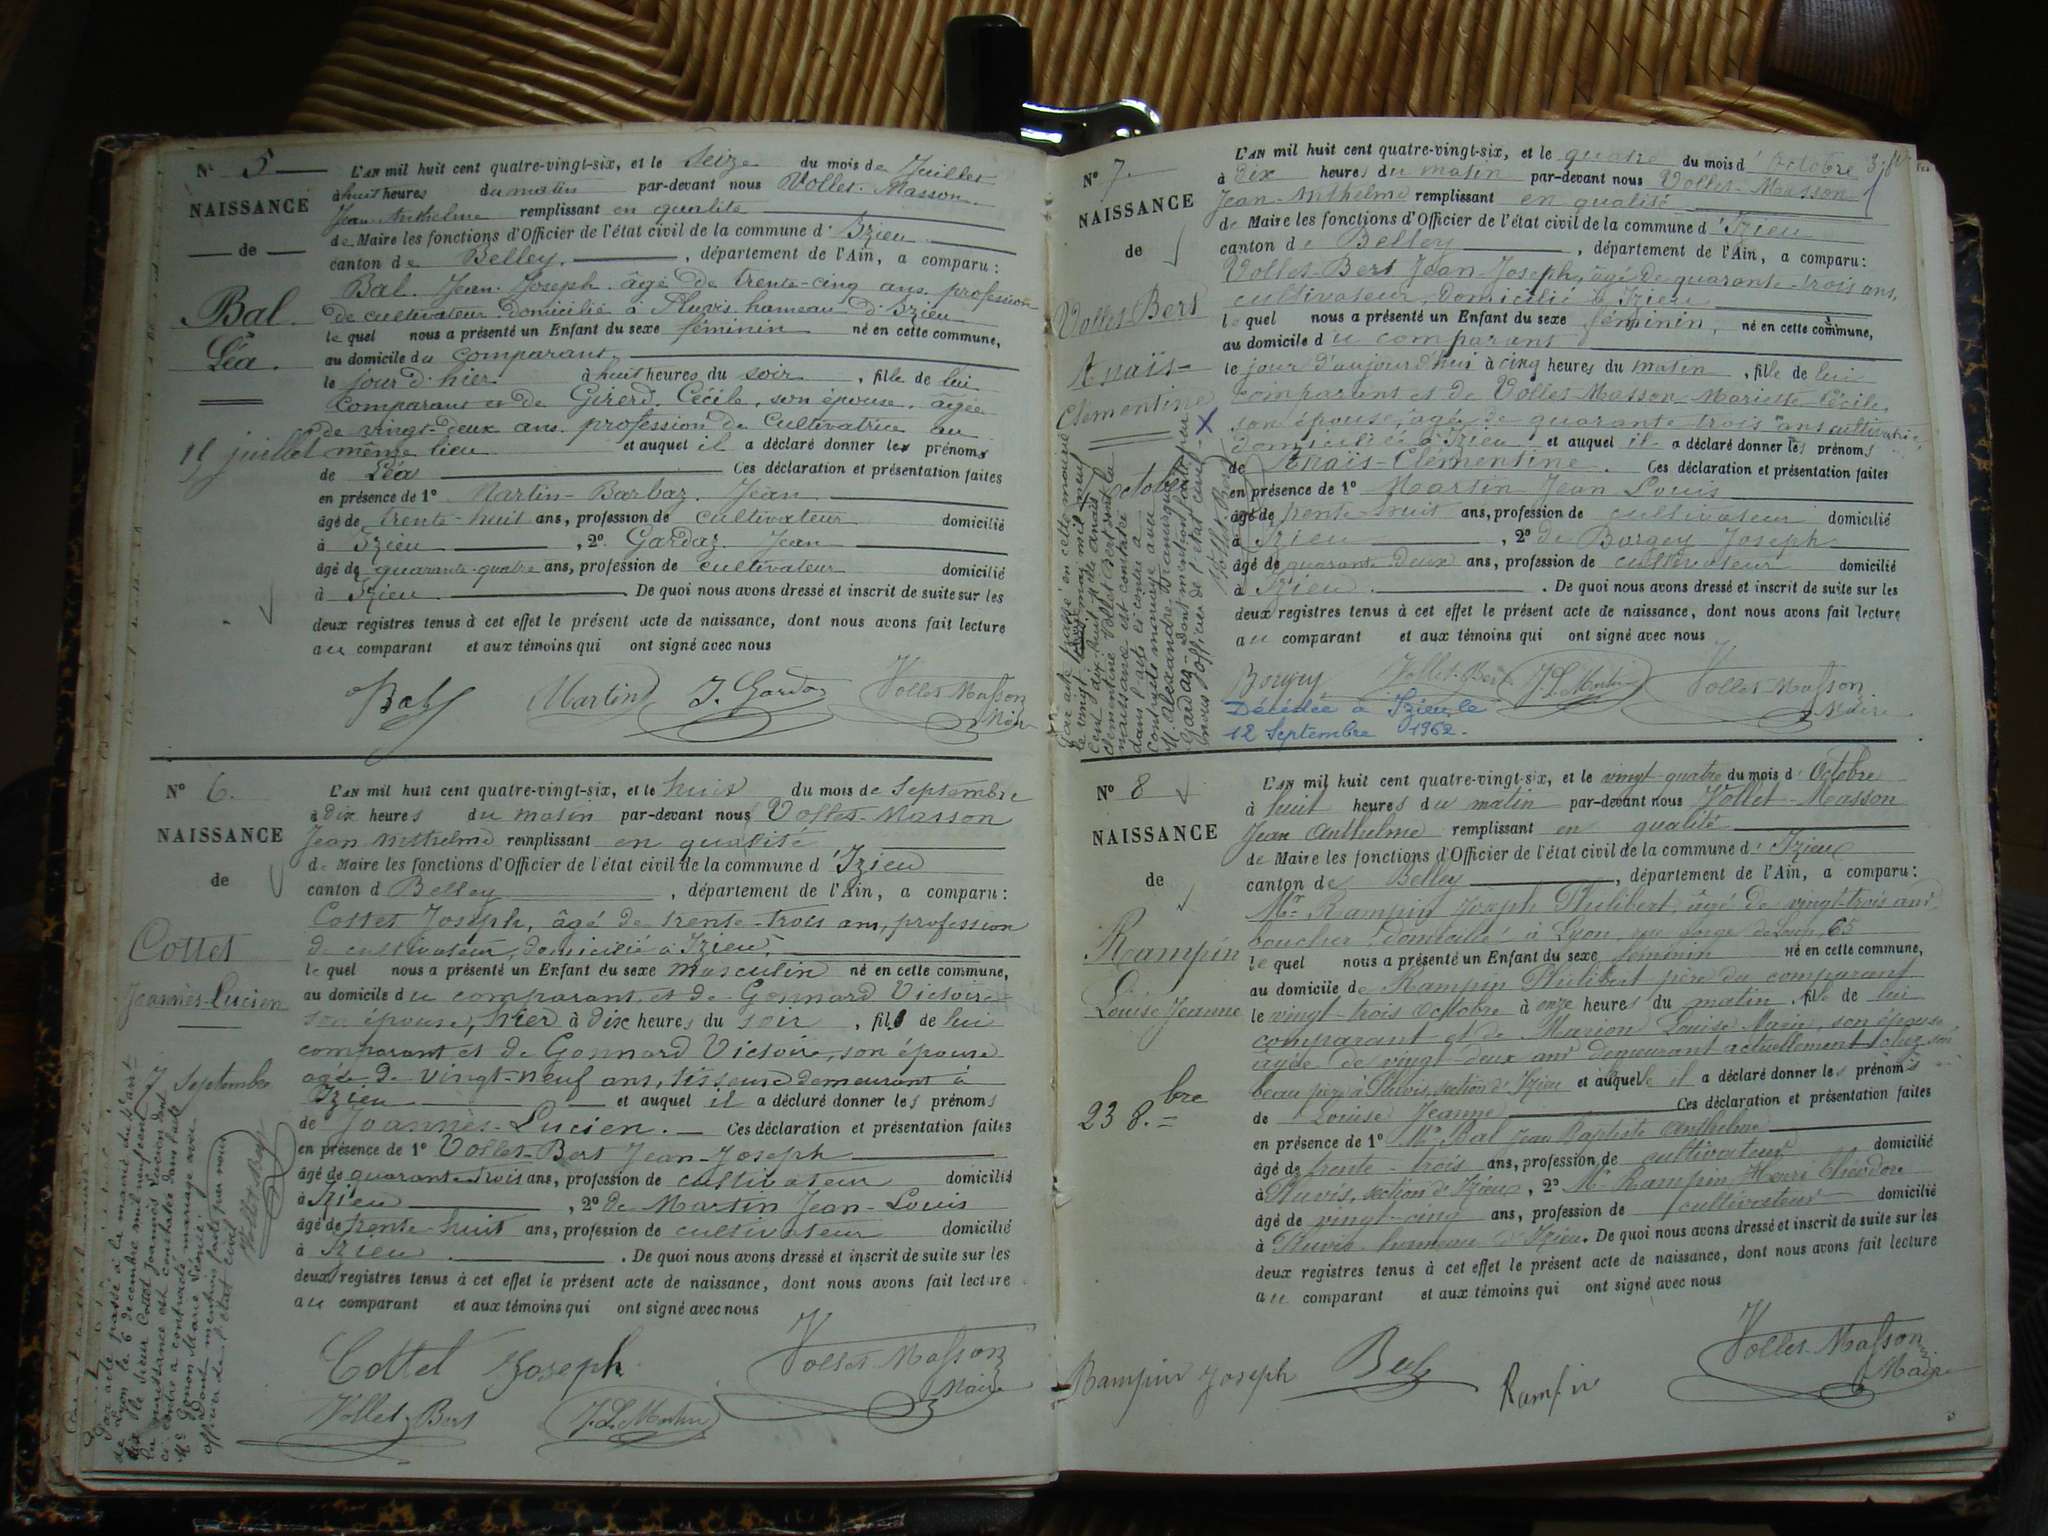 N° 5
NAISSANCE
de
Bal
Léa
15 juillet
L'AN mil huit cent quatre-vingt-six, et le Seize du mois de Juillet
à huit heures du matin par-devant nous Vollet-Masson
Jean Anthelme remplissant en qualité
de Maire les fonctions d'Officier de l'état civil de la commune d'Izieu
canton de Belley, département de l'Ain, a comparu :
Bal Jean Joseph âgé de trente-cinq ans profession
de cultivateur domicilié à Pluvis hameau d'Izieu
le quel nous a présenté un Enfant du sexe féminin né en cette commune,
au domicile du comparant
le jour d'hier à huit heures du soir, fille de lui
comparant et de Girerd Cécile, son épouse, âgée
de vingt-deux ans profession de Cultivatrice au
même lieu et auquel il a déclaré donner les prénoms
de Léa Ces déclaration et présentation faites
en présence de 1° Martin-Barbaz Jean
âgé de trente-huit ans, profession de cultivateur domicilié
à Izieu, 2° Gardaz Jean
âgé de quarante-quatre ans, profession de cultivateur domicilié
à Izieu. De quoi nous avons dressé et inscrit de suite sur les
deux registres tenus à cet effet le présent acte de naissance, dont nous avons fait lecture
au comparant et aux témoins qui ont signé avec nous
Bal Martin J. Gardaz Vollet Masson
Maire
N° 6
NAISSANCE
de
Cottet
Joannès-Lucien
7 Septembre
L'AN mil huit cent quatre-vingt-six, et le huit du mois de Septembre
à dix heures du matin par-devant nous Vollet-Masson
Jean Anthelme remplissant en qualité
de Maire les fonctions d'Officier de l'état civil de la commune d'Izieu
canton d Belley, département de l'Ain, a comparu :
Cottet Joseph, âgé de trente-trois ans, profession
de cultivateur, domicilié à Izieu,
le quel nous a présenté un Enfant du sexe masculin né en cette commune,
au domicile du comparant et de Gonnard Victoire
son épouse, hier à dix heures du soir, fils de lui
comparant et de Gonnard Victoire, son épouse
agée de vingt-neuf ans, tisseuse demeurant à
Izieu et auquel il a déclaré donner les prénoms
de Joannès-Lucien. Ces déclaration et présentation faites
en présence de 1° Vollet-Bert Jean-Joseph
âgé de quarante-trois ans, profession de cultivateur domicilié
à Izieu, 2° de Martin Jean-Louis
âgé de trente-huit ans, profession de cultivateur domicilié
à Izieu. De quoi nous avons dressé et inscrit de suite sur les
deux registres tenus à cet effet le présent acte de naissance, dont nous avons fait lecture
au comparant et aux témoins qui ont signé avec nous
Cottet Joseph Vollet Masson
Maire
Vollet Bert J. L. Martin
Par acte passé à la mairie du
de Lyon le 6 decembre mil neuf cent
le sieur Cottet Joannès Lucien dont
la naissance est constatée dans l'acte
ci contre a contracté mariage avec
Gonon Marie
dont mention faite par nous
officier de l'état civil
Vollet Bert
N° 7
NAISSANCE
de
Vollet-Bert
Anaïs-
Clementine
4 octobre
L'AN mil huit cent quatre-vingt-six, et le quatre du mois d'octobre
à dix heures du matin par-devant nous Vollet-Masson
Jean-Anthelme remplissant en qualité
de Maire les fonctions d'Officier de l'état civil de la commune d'Izieu
canton de Belley, département de l'Ain, a comparu :
Vollet-Bert Jean-Joseph, âgé de quarante-trois ans,
cultivateur, domicilié à Izieu
le quel nous a présenté un Enfant du sexe féminin, né en cette commune,
au domicile du comparant
le jour d'aujourd'hui à cinq heures du matin, fille de lui
comparant et de Vollet-Masson Mariette Cécile,
son épouse, âgée de quarante trois ans cultivatrice,
domiciliée à Izieu et auquel il a déclaré donner les prénoms
de Anaïs-Clémentine. Ces déclaration et présentation faites
en présence de 1° Martin Jean Louis
âgé de trente-huit ans, profession de cultivateur domicilié
à Izieu, 2° de Borgey Joseph
âgé de quarante deux ans, profession de cultivateur domicilié
à Izieu. De quoi nous avons dressé et inscrit de suite sur les
deux registres tenus à cet effet le présent acte de naissance, dont nous avons fait lecture
au comparant et aux témoins qui ont signé avec nous
Borgey Vollet-Bert J. L. Martin Vollet Masson
Maire
Décédée à Izieu le
12 Septembre 1962.
Par acte passé en cette mairie
le vingt mai mil neuf
cent dix huit, Anaïs
clementine Vollet Bert dont la
naissance est constatée
dans l'acte ci contre a
contracté mariage avec
M. Alexandre
Gardaz dont mention faite par
nous officier de l'état civil
Vollet Bert
N° 8
NAISSANCE
de
Rampin
Louise Jeanne
23 8.bre
L'AN mil huit cent quatre-vingt-six, et le vingt-quatre du mois d'Octobre
à huit heures du matin par-devant nous Vollet-Masson
Jean Anthelme remplissant en qualité
de Maire les fonctions d'Officier de l'état civil de la commune d'Izieu
canton de Belley, département de l'Ain, a comparu :
Mr Rampin Joseph Philibert, âgé de vingt-trois ans
boucher domicilié à Lyon, rue Gorge de Loup, 65
le quel nous a présenté un Enfant du sexe féminin né en cette commune,
au domicile de Rampin Philibert père du comparant
le vingt-trois Octobre à onze heures du matin, fille de lui
comparant et de Marion Louise Marie, son épouse
âgée de vingt-deux ans demeurant actuellement chez son
beau père à Pluvis, section d'Izieu et auquel il a déclaré donner les prénoms
de Louise Jeanne Ces déclaration et présentation faites
en présence de 1° Mr Bal Jean Baptiste Anthelme
âgé de trente-trois ans, profession de cultivateur domicilié
à Pluvis, section d'Izieu, 2° Mr Rampin Henri Théodore
âgé de vingt-cinq ans, profession de cultivateur domicilié
à Pluvis hameau d'Izieu. De quoi nous avons dressé et inscrit de suite sur les
deux registres tenus à cet effet le présent acte de naissance, dont nous avons fait lecture
au comparant et aux témoins qui ont signé avec nous
Rampin Joseph Bal Rampin Vollet Masson
Maire